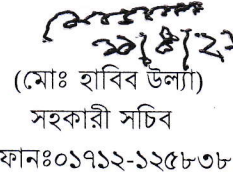 (মোঃ হাবিব উল্যা)
সহকারী সচিব
ফানঃ০১৭১২-১২৫৮৩৮